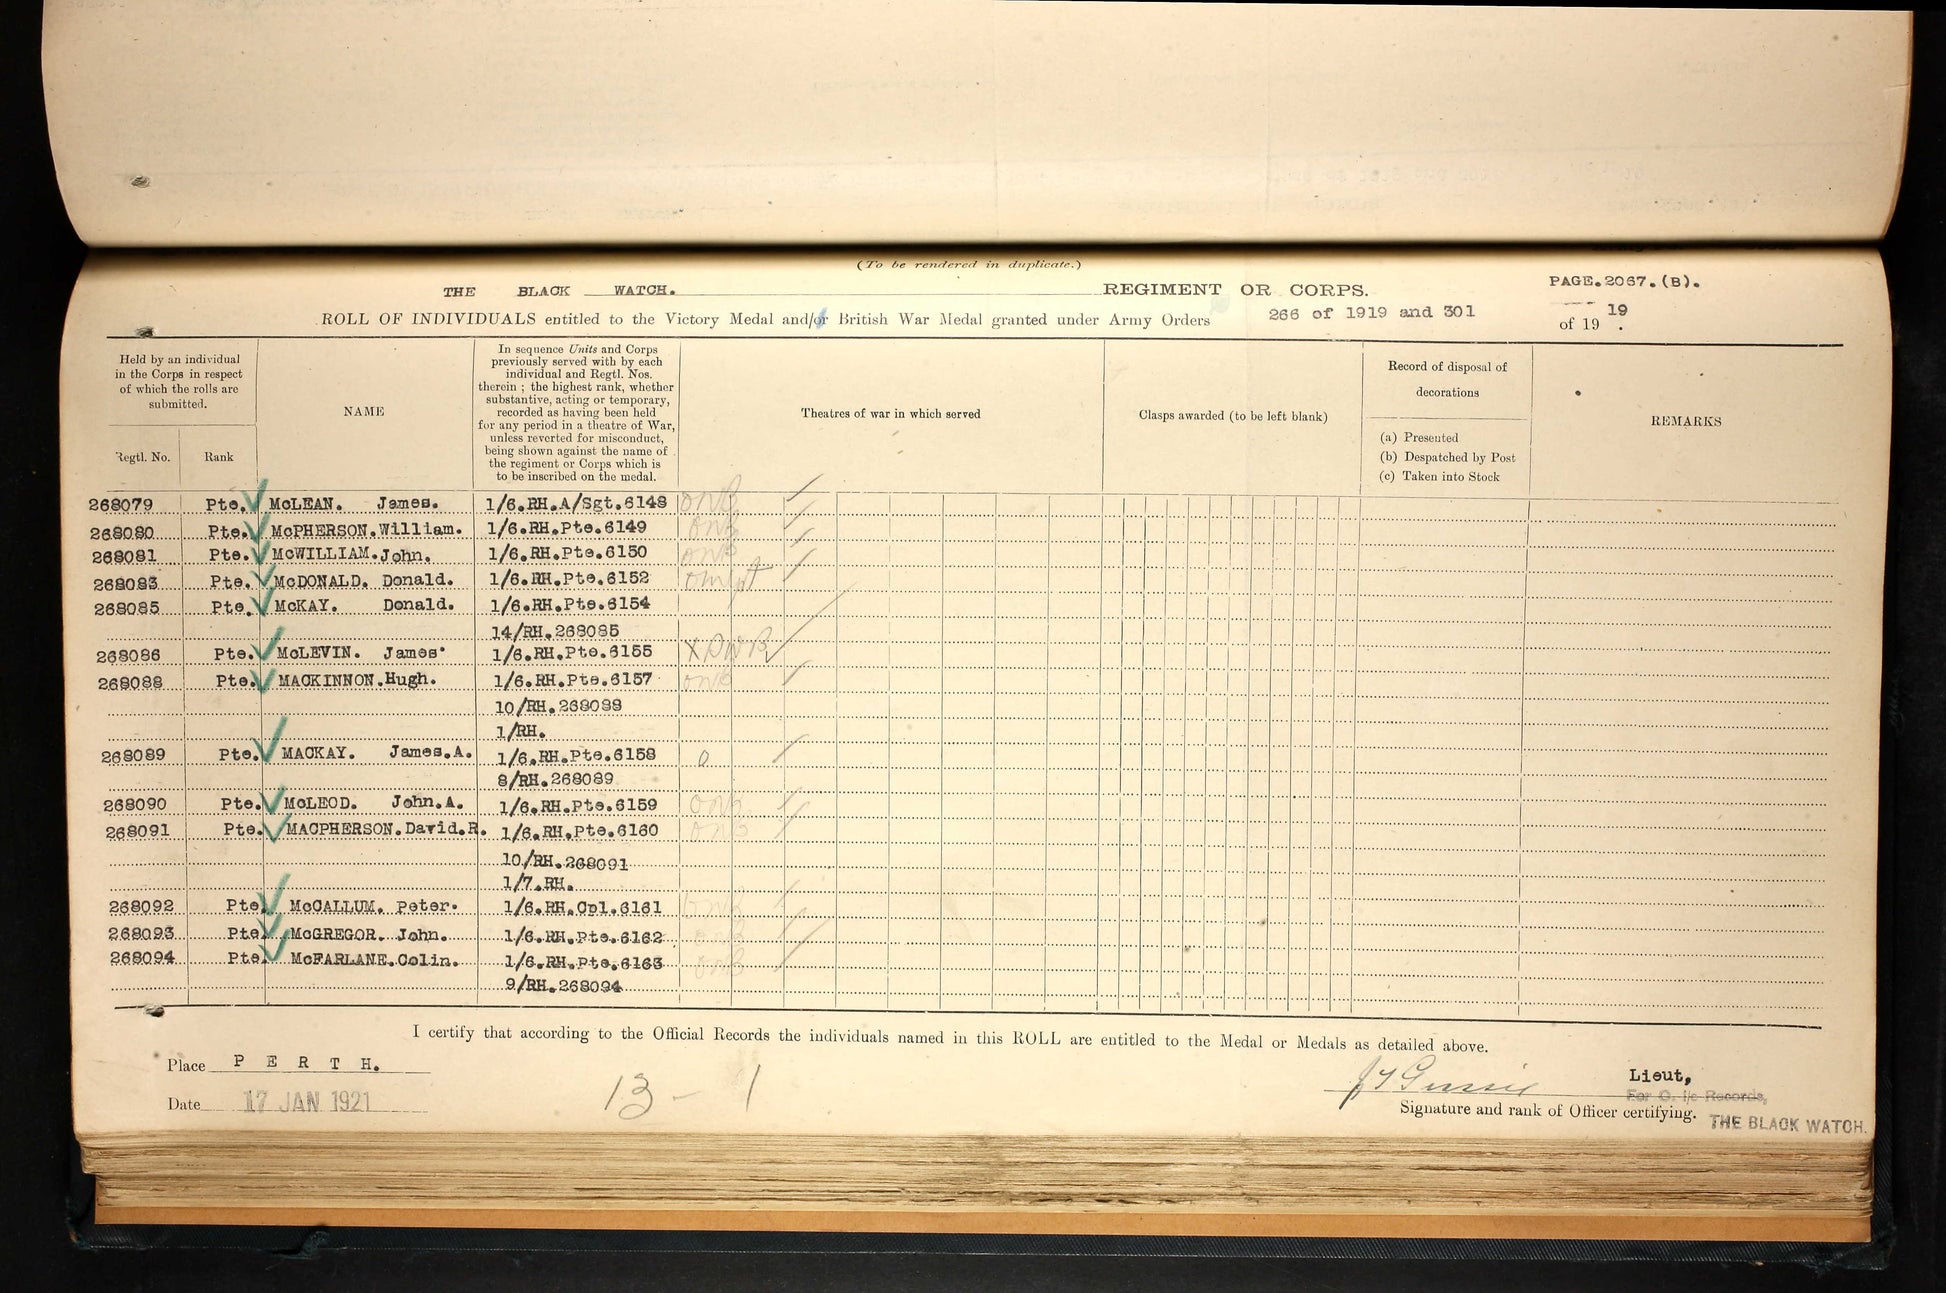 (To be rendered in duplicate.)
THE BLACK WATCH. REGIMENT OR CORPS. PAGE.2067.(B).
ROLL OF INDIVIDUALS entitled to the Victory Medal and/or British War Medal granted under Army Orders 266 of 1919 and 301 of 19 19 .
Held by an individual
in the Corps in respect
of which the rolls are
submitted.
Regtl. No. Rank
NAME
In sequence Units and Corps
previously served with by each
individual and Regtl. Nos.
therein ; the highest rank, whether
substantive, acting or temporary,
recorded as having been held
for any period in a theatre of War,
unless reverted for misconduct,
being shown against the name of
the regiment or Corps which is
to be inscribed on the medal.
Theatres of war in which served
Clasps awarded (to be left blank)
Record of disposal of
decorations
(a) Presented
(b) Despatched by Post
(c) Taken into Stock
REMARKS
268079 Pte. McLEAN. James. 1/6.RH.A/Sgt.6148
268080 Pte. McPHERSON.William. 1/6.RH.Pte.6149
268081 Pte. McWILLIAM.John. 1/6.RH.Pte.6150
268083 Pte. McDONALD. Donald. 1/6.RH.Pte.6152
268085 Pte. McKAY. Donald. 1/6.RH.Pte.6154
14/RH.268085
268086 Pte. McLEVIN. James. 1/6.RH.Pte.6155
268088 Pte. MACKINNON.Hugh. 1/6.RH.Pte.6157
10/RH.268088
1/RH.
268089 Pte. MACKAY. James.A. 1/6.RH.Pte.6158
8/RH.268089
268090 Pte. McLEOD. John.A. 1/6.RH.Pte.6159
268091 Pte. MACPHERSON.David.R. 1/6.RH.Pte.6160
10/RH.268091
1/7.RH.
268092 Pte. McCALLUM. Peter. 1/6.RH.Cpl.6161
268093 Pte. McGREGOR. John. 1/6.RH.Pte.6162
268094 Pte. McFARLANE.Colin. 1/6.RH.Pte.6163
9/RH.268094
I certify that according to the Official Records the individuals named in this ROLL are entitled to the Medal or Medals as detailed above.
Place P E R T H.
Date 17 JAN 1921
13 - 1
Lieut,
For O. i/c Records,
Signature and rank of Officer certifying.
THE BLACK WATCH.